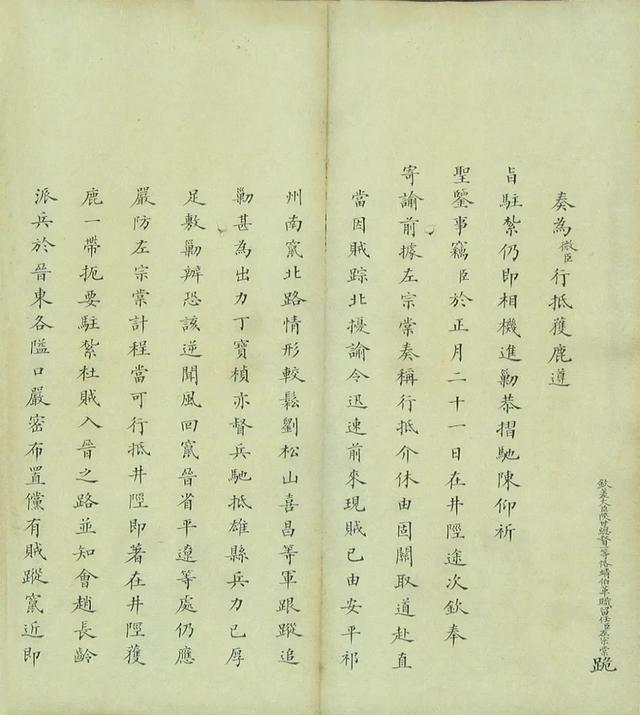 欽差大臣陝甘總督一等恪靖伯革職留任臣左宗棠跪
奏為微臣行抵獲鹿遵
旨駐紮仍即相機進勦恭摺馳陳仰祈
聖鑒事竊臣於正月二十一日在井陘途次欽奉
寄諭前據左宗棠奏稱行抵介休由固關取道赴直
當因賊踪北擾諭令迅速前來現賊已由安平祁
州南竄北路情形較鬆劉松山喜昌等軍跟蹤追
勦甚為出力丁寶楨亦督兵馳抵雄縣兵力已厚
足敷勦辦恐該逆聞風回竄晉省平遼等處仍應
嚴防左宗棠計程當可行抵井陘即著在井陘獲
鹿一帶扼要駐紮杜賊入晉之路並知會趙長齡
派兵於晉東各隘口嚴密布置儻有賊蹤竄近即